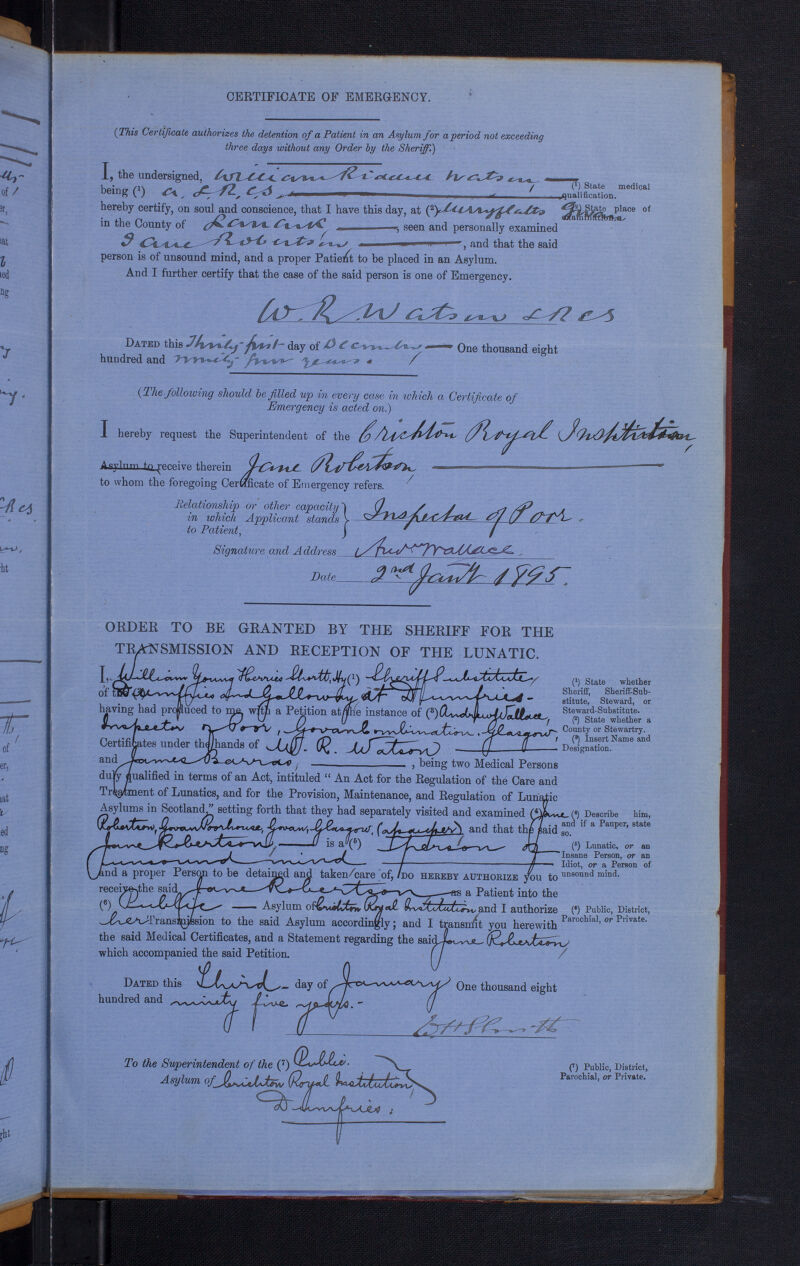 CERTIFICATE OF EMERGENCY.
(This Certificate authorizes the detention of a Patient in an Asylum for a period not exceeding
three days without any Order by the Sheriff.)
I, the undersigned, William Riddell Watson
being (¹) a L.R.C.S
(¹) State medical
qualification.
hereby certify, on soul and conscience, that I have this day, at (²) Merryflatts Govan
(²) State place of
examination.
in the County of Lanark, seen and personally examined
Jane Robertson, and that the said
person is of unsound mind, and a proper Patient to be placed in an Asylum.
And I further certify that the case of the said person is one of Emergency.
W. R. Watson LRCS
DATED this Thirty first day of December One thousand eight
hundred and ninety four years.
(The following should be filled up in every case in which a Certificate of
Emergency is acted on.)
I hereby request the Superintendent of the Crichton Royal Institution,
Asylum to receive therein Jane Robertson
to whom the foregoing Certificate of Emergency refers.
Relationship or other capacity
in which Applicant stands
to Patient,
Inspector of Poor.
Signature and Address Andw Wallace.
Date 2nd Jany 1895.
ORDER TO BE GRANTED BY THE SHERIFF FOR THE
TRANSMISSION AND RECEPTION OF THE LUNATIC.
I, William Young Herries Shortt, Ay (¹) Sheriff Substitute,
of Dumfries and Galloway at Dumfries
(¹) State whether
Sheriff, Sheriff-Sub-
stitute, Steward, or
Steward-Substitute.
having had produced to me, with a Petition at the instance of (³) Andrew Wallace,
Inspector of Poor, Govan Combination, Glasgow,
(²) State whether a
County or Stewartry.
(³) Insert Name and
Designation.
Certificates under the hands of W. R. Watson
and James Barras, being two Medical Persons
duly qualified in terms of an Act, intituled "An Act for the Regulation of the Care and
Treatment of Lunatics, and for the Provision, Maintenance, and Regulation of Lunatic
Asylums in Scotland," setting forth that they had separately visited and examined (⁴) Jane
Robertson, Govan Poorhouse, Govan, Glasgow, (a pauper) and that the said
(⁴) Describe him,
and if a Pauper, state
so.
Jane Robertson, is a (⁵) person of
unsound mind
(⁵) Lunatic, or an
Insane Person, or an
Idiot, or a Person of
unsound mind.
and a proper Person to be detained and taken care of, DO HEREBY AUTHORIZE you to
receive the said Jane Robertson as a Patient into the
(⁶) Public Asylum of Crichton Royal Institution and I authorize
(⁶) Public, District,
Parochial, or Private.
her Transmission to the said Asylum accordingly; and I transmit you herewith
the said Medical Certificates, and a Statement regarding the said Jane Robertson,
which accompanied the said Petition.
DATED this Third day of January One thousand eight
hundred and ninety five years.
To the Superintendent of the (⁷) Public.
Asylum of Crichton Royal Institution,
Dumfries.
(⁷) Public, District,
Parochial, or Private.